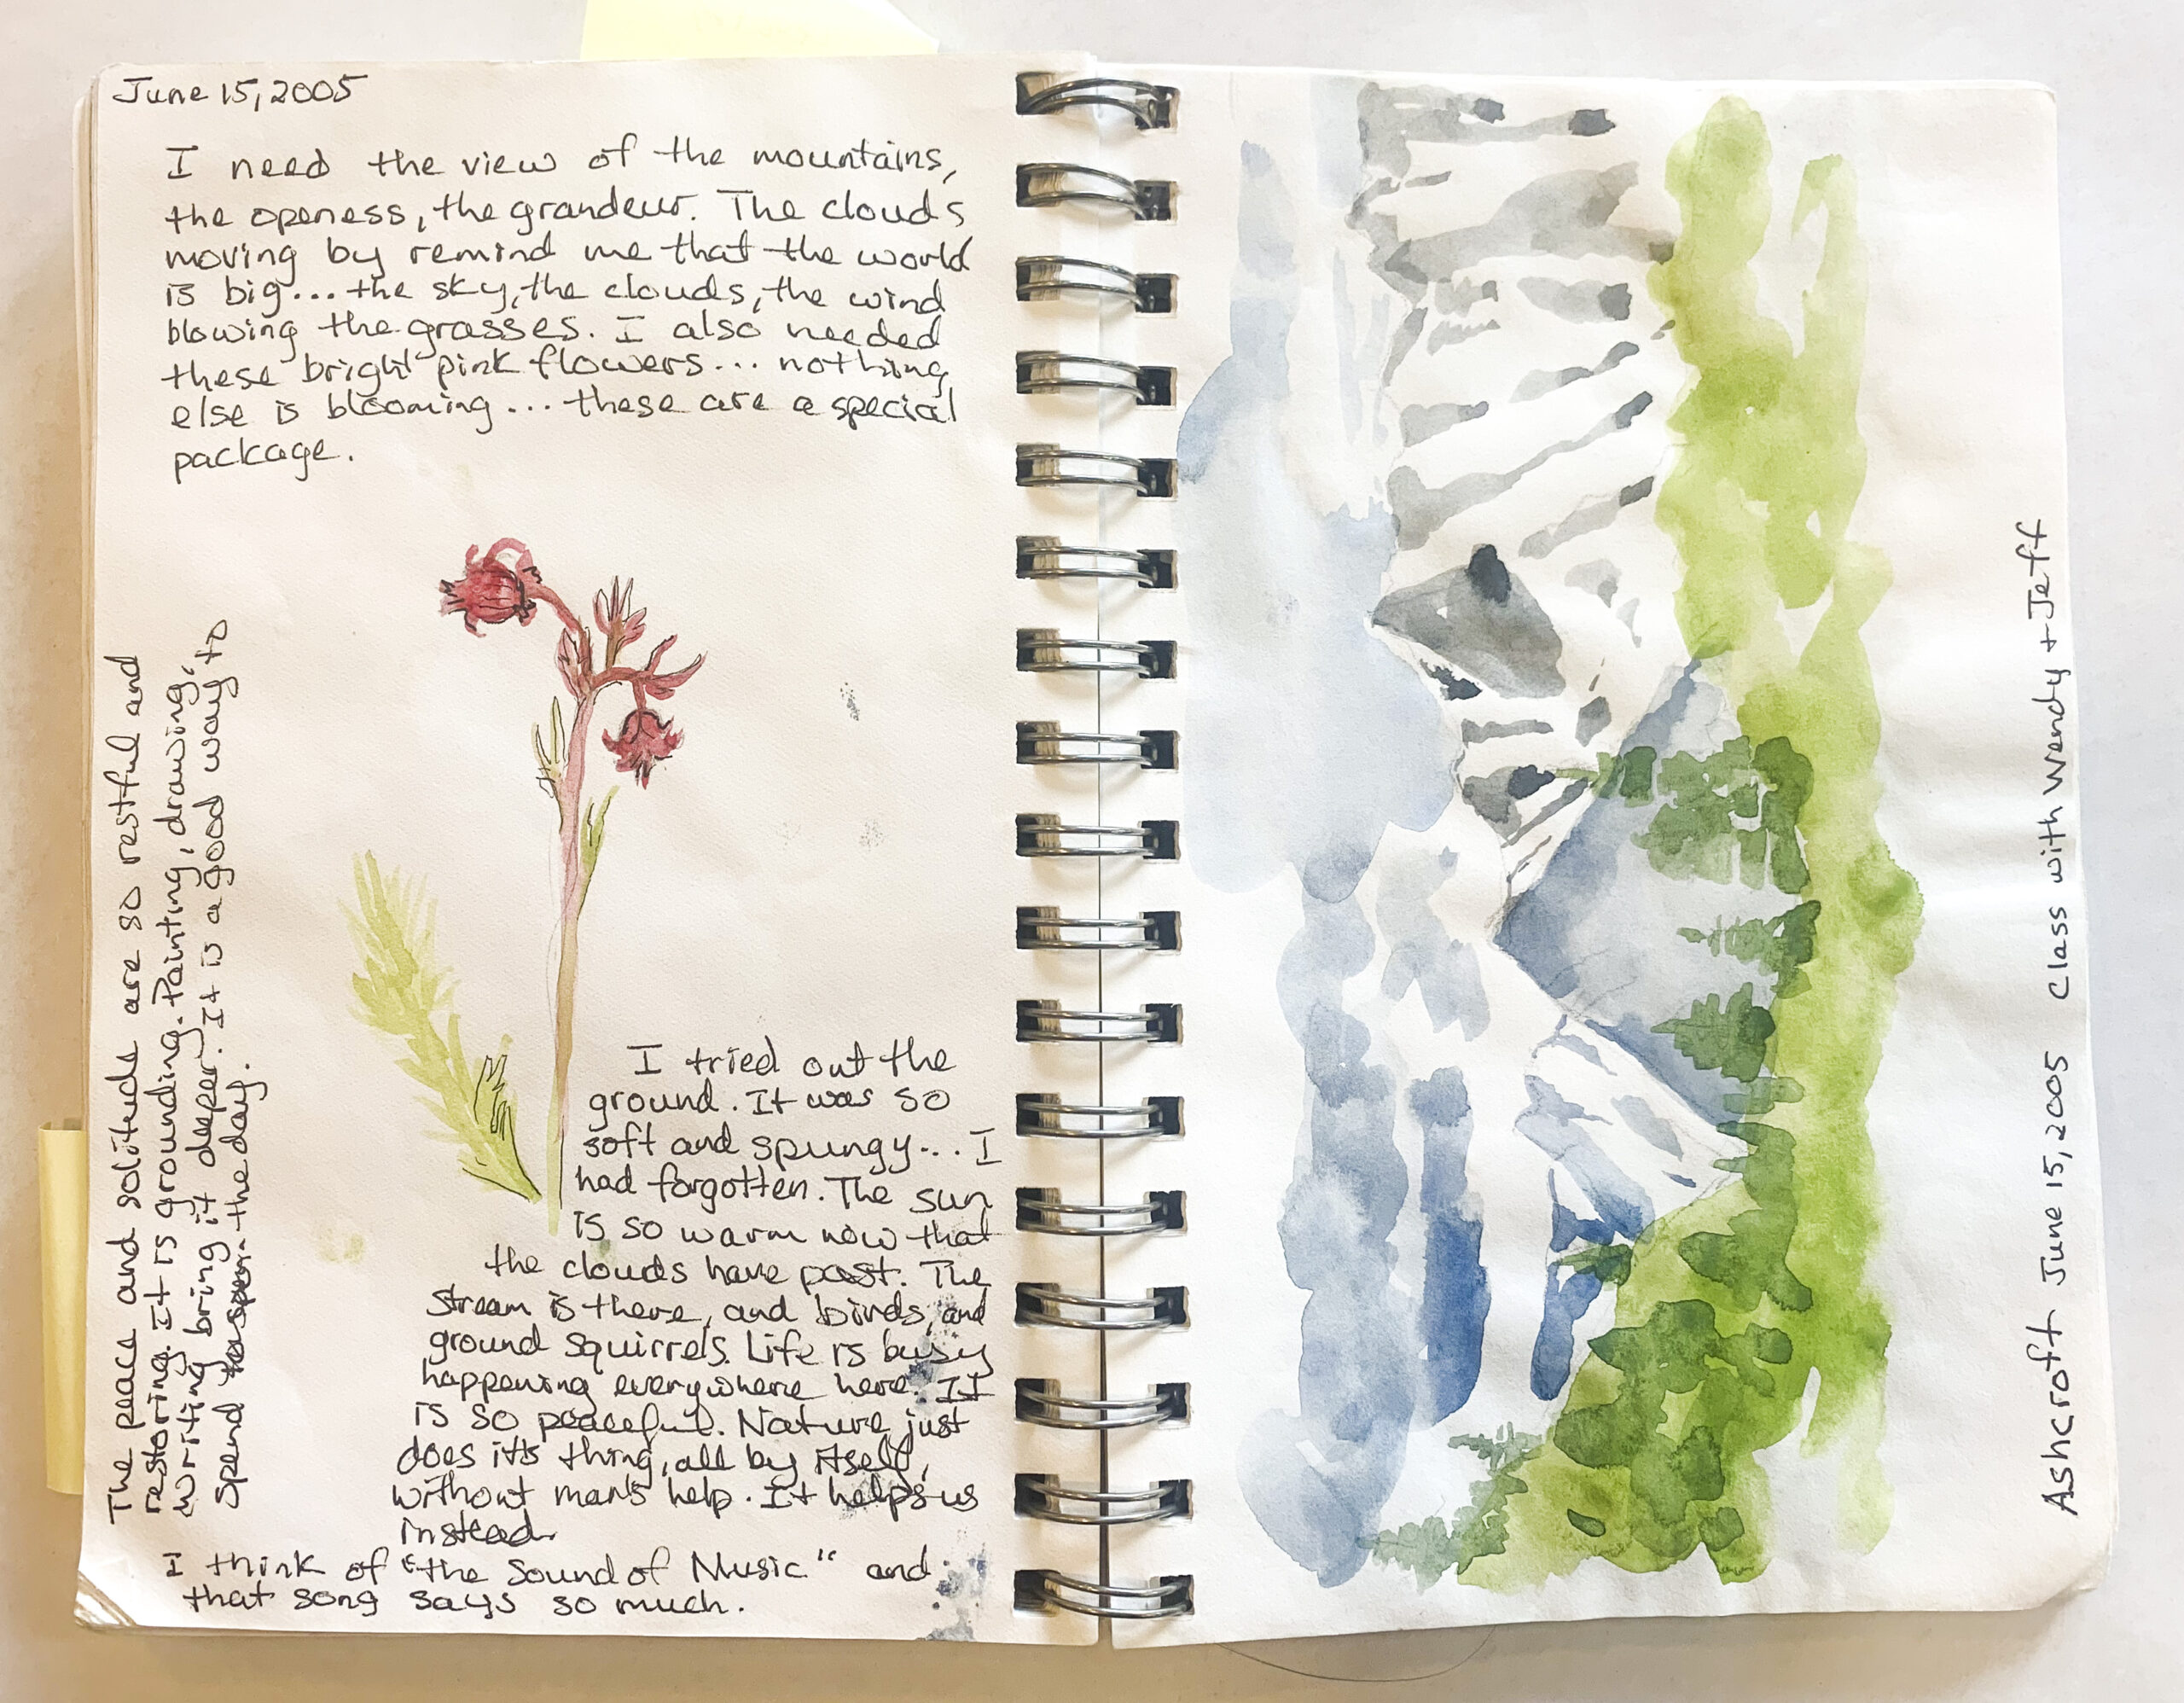 June 15, 2005
I need the view of the mountains,
the openess, the grandeur. The clouds
moving by remind me that the world
is big... the sky, the clouds, the wind
blowing the grasses. I also needed
these bright pink flowers... nothing
else is blooming... these are a special
package.
I tried out the
ground. It was so
soft and spungy... I
had forgotten. The sun
is so warm now that
the clouds have past. The
stream is there, and birds, and
ground squirrels. Life is busy
happening everywhere here. It
is so peaceful. Nature just
does it's thing, all by itself,
without man's help. It helps us
instead.
I think of "the Sound of Music" and
that song says so much.
The peace and solitude are so restful and
restoring. It is grounding. Painting, drawing,
writing bring it deeper. It is a good way to
spend the day.
Ashcroft June 15, 2005 Class with Wendy + Jeff